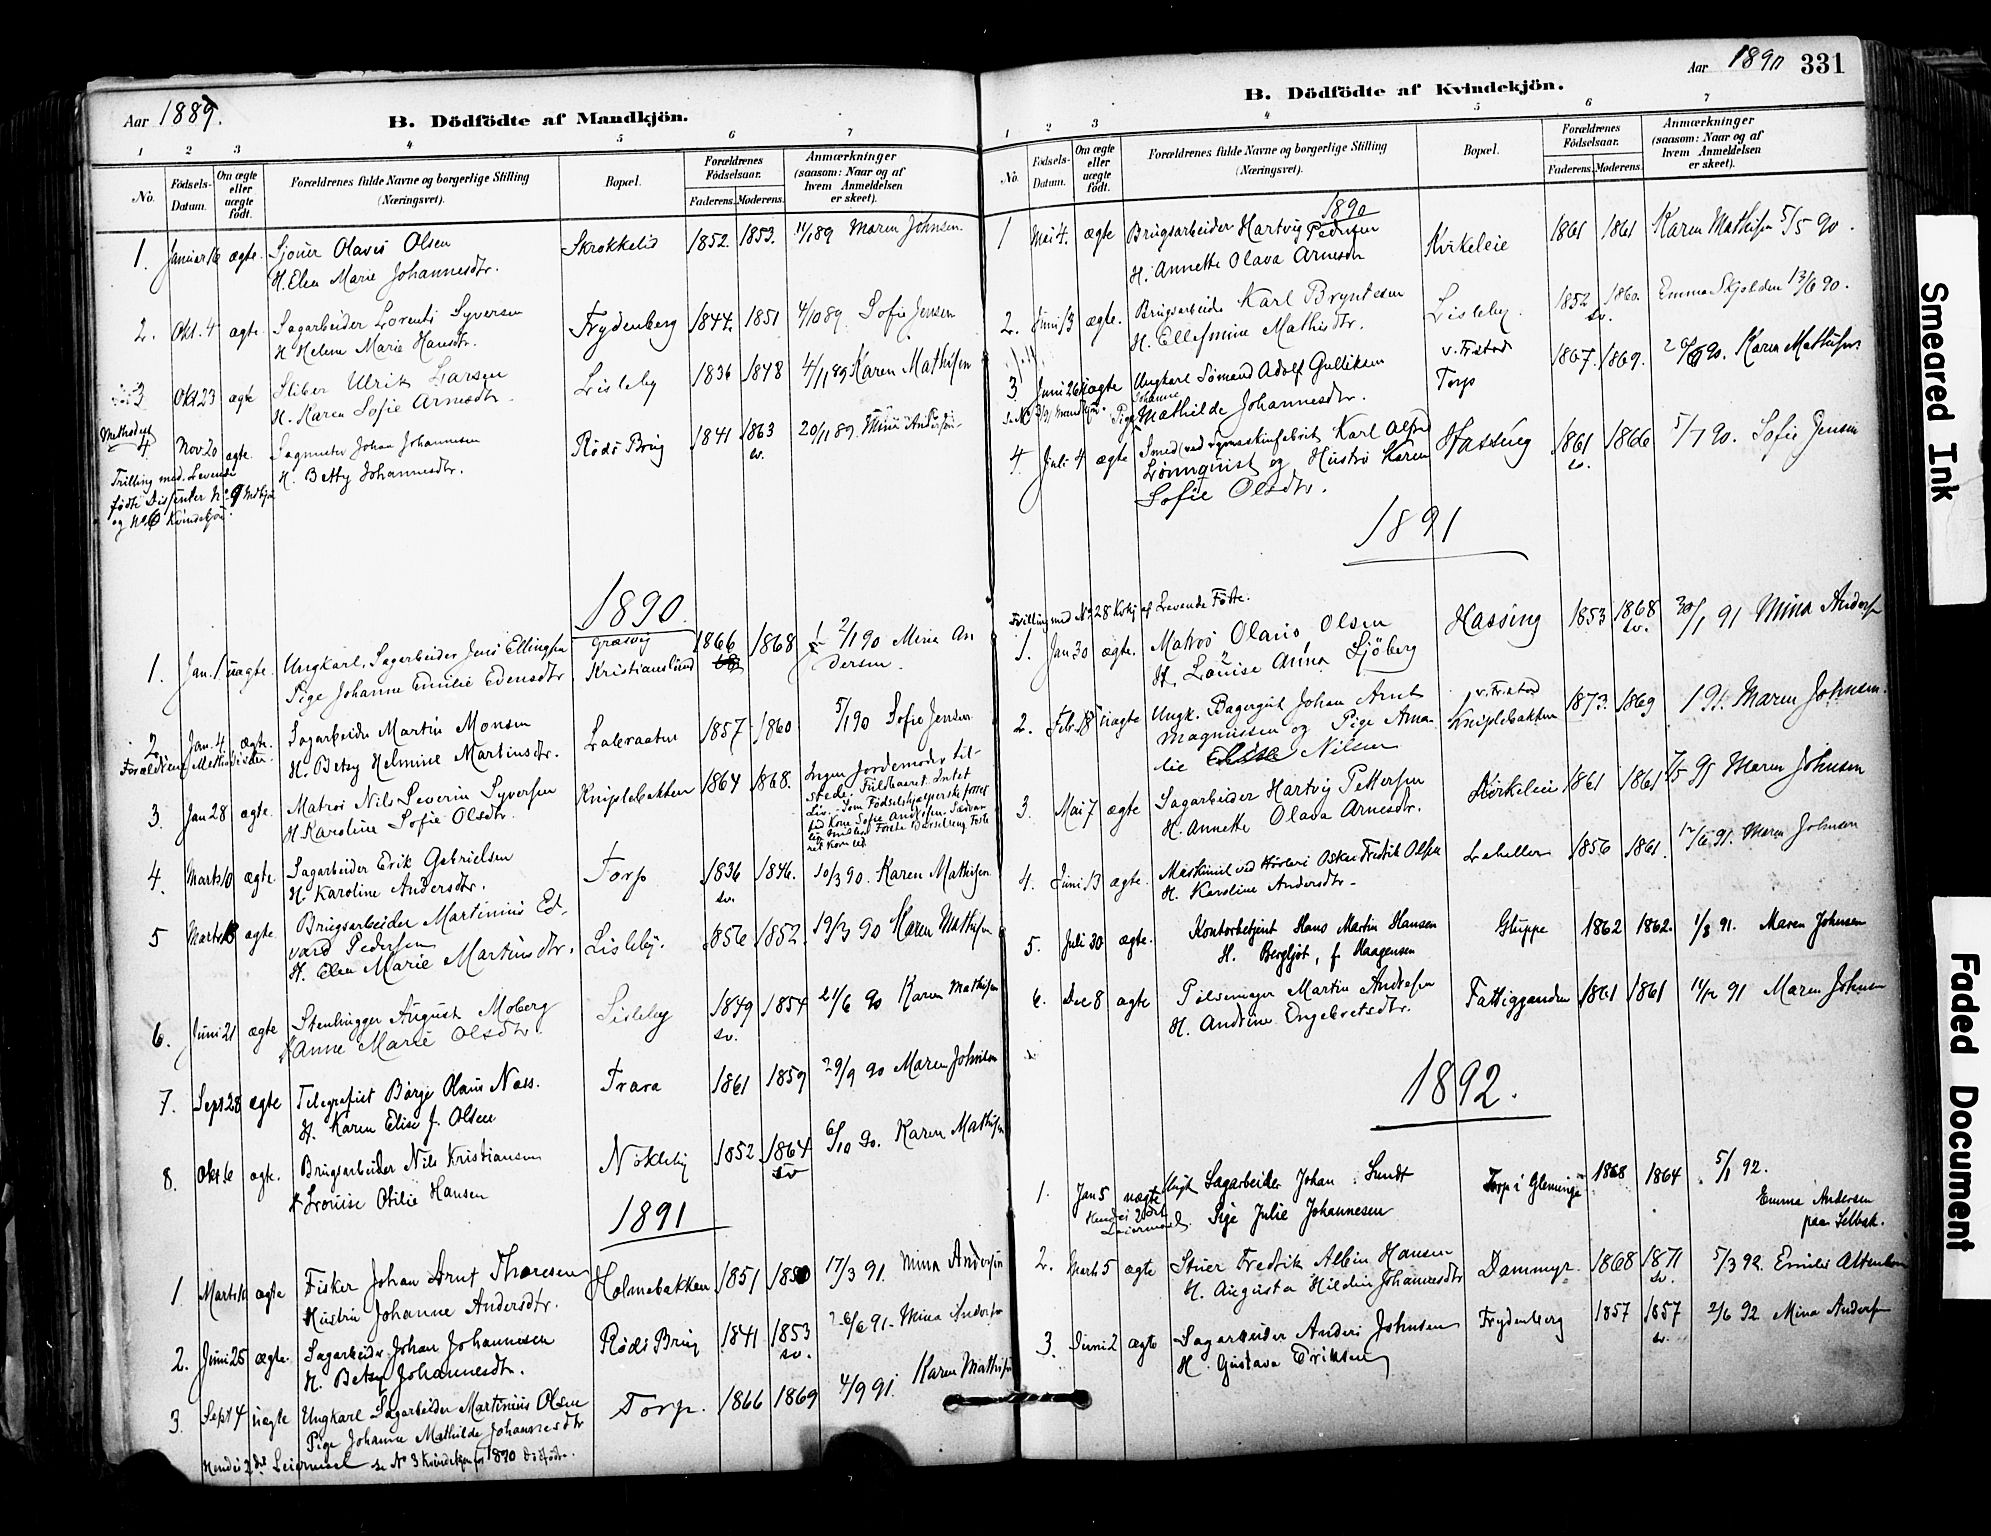 Aar 1889.
B. Dödfödte af Mandkjön.
1 2 3 4 5 6 7
No.
Födsels-Datum.
Om ægte eller uægte födt.
Forældrenes fulde Navne og borgerlige Stilling
(Næringsvei).
Bopæl.
Forældrenes Födselsaar.
Faderens. Moderens.
Anmærkninger
(saasom: Naar og af
hvem Anmeldelsen
er skeet).
1. Januar 16 ægte. Sjöuer Olavis Olsen Skrokkelid 1852. 1853. 11/1 89 Maren Johnsen
H. Elen Marie Johannesdtr.
2. Okt. 4 ægte. Sagarbeider Lorents Syversen Frydenberg 1844. 1851 4/10 89. Sofie Jensen
H. Helene Marie Hansdtr.
3 Okt 23 ægte Sliber Ulrik Larsen Lisleby 1836 1848 4/11 89 Karen Mathisen
H. Karen Sofie Arnesdtr.
4 Nov. 20 ægte. Sagmester Johan Johannesen Röds Brug 1841 1863 sv. 20/11 89. Mina Andersen
H. Betty Johannesdtr.
Trilling med Levende
födte Dissenter No 9 Mdkjön
og No 6 Kvindekjön.
1890.
1. Jan. 1 uægte. Ungkarl, Sagarbeider Jens Ellingsen Græsvig 1866 1868 2/1 90 Mina An
Pige Johanne Emilie Edensdtr Kristianslund dersen.
2. Jan. 4 ægte. Sagarbeider Martin Monsen Laberaaten 1857 1860 5/1 90 Sofie Jensen
H. Betzy Helmine Martinsdtr.
3. Jan 28 ægte. Matros Nils Severin Syversen Kniplebakken 1864 1868. Ingen Jordemoder til-
H. Karoline Sofie Olsdtr. stede. Fuldbaaret. Intet
Liv.
4. Marts 10 ægte. Sagarbeider Erik Gabrielsen Torp 1836 sv. 1846. 10/3 90. Karen Mathisen
H. Karoline Andersdtr.
5 Marts 18 ægte. Brugsarbeider Martinius Ed- Lisleby. 1856 1852. 19/3 90 Karen Mathisen
vard Pedersen
H. Elen Marie Martinsdtr.
6. Juni 21 ægte Stenhugger August Moberg Lisleby 1849 sv. 1854 21/6 90 Karen Mathisen
Anne Marie Olsdtr.
7. Sept 28 ægte Telegrafist Börge Olaus Næss. Trara 1861 1859 29/9 90 Maren Johnsen
H. Karen Elise J. Olsen
8. Okt. 6 ægte. Brugsarbeider Nils Kristiansen Nökleby 1852 1864 sv 6/10 90. Karen Mathisen
Lovise Otilie Hansen
1891
1. Marts 16 ægte Fisker Johan Arnt Thoresen Holmebakken 1851 1850 17/3 91. Mina Andersen
Hustru Johanne Andersdtr.
2. Juni 25 ægte. Sagarbeider Johan Johannesen Röds Brug 1841 1853 sv. 26/6 91. Mina Andersen
H. Betzy Johannesdtr.
3. Sept 4 uægte Ungkarl Sagarbeider Martinius Olsen Torp. 1866 1869 4/9 91. Karen Mathisen
Pige Johanne Mathilde Johannesdtr
Hendes 2det Leiermaal se No 3 Kvindekjön for 1890 Dödfödte.
Aar 1890 331
B. Dödfödte af Kvindekjön.
1 2 3 4 5 6 7
No.
Födsels-Datum.
Om ægte eller uægte födt.
Forældrenes fulde Navne og borgerlige Stilling
(Næringsvei).
Bopæl.
Forældrenes Födselsaar.
Faderens. Moderens.
Anmærkninger
(saasom: Naar og af
hvem Anmeldelsen
er skeet).
1890
1 Mai 4. ægte Brugsarbeider Hartvig Pedersen Kirkeleie 1861 1861 Karen Mathisen 5/5 90.
H. Annette Olava Arnesdtr
2. Juni 13 ægte. Brugsarbeider Karl Bryntesen Lisleby. 1852 sv. 1860. Emma Skjolden 13/6 90.
H. Ellefmine Mathisdtr.
3 Juni 26 uægte Ungkarl Sömand Adolf Gulliksen v. Fr.stad 1867. 1869. Karen Mathisen
Pige Johanne Mathilde Johannesdtr. Torp
4. Juli 4 ægte Smed ved Karl Alfred Hassing 1861 sv. 1866 5/7 90. Sofie Jensen
Lönnquist og Hustru Karen
Sofie Olsdtr.
1891
Tvilling med No 28 Kvkj af Levende Födte.
1. Jan 30 ægte. Matros Olaus Olsen Hassing 1853 1868 sv. 30/1 91 Mina Andersen
H. Louise Anna Sjöberg
2. Febr. 18 uægte Ungk. Bagergut Johan Arnt v. Fr.stad 1873. 1869 Maren Johnsen.
Magnussen og Pige Ama- Kniplebakken
lie Nilsen
3. Mai 7 ægte Sagarbeider Hartvig Pettersen Kirkeleie 1861 1861 7/5 91 Maren Johnsen
H. Annette Olava Arnesdtr.
4. Juni 13 ægte. Maskinist ved Oskar Fredrik Olsen Lahellen 1856 1861. Maren Johnsen
H. Karoline Andersdtr.
5. Juli 30 ægte. Kontorbetjent Hans Martin Hansen Gluppe 1862 1862. 1/8 91. Maren Johnsen
H. Bergljot, f. Haagensen
6. Dec 8 ægte Pölsemager Martin Andresen Fattiggaarden 1861 1861 14/12 91 Maren Johnsen
H. Andrine Engebretsdtr.
1892.
1. Jan 5 uægte Ungk Sagarbeider Johan Lundt Torp i Glemminge 1868 1864 5/1 92.
Hendes 2det Leiermaal. Pige Julie Johannesen Emma Andersen
paa Selbak.
2. Marts 5 ægte Stuer Fredrik Albin Hansen Dammyr. 1868 1871 sv. 5/3 92. Emilie
H. Augusta Hildin Johannesdtr
3. Juni 2 ægte Sagarbeider Anders Johnsen Frydenberg 1857 1857 sv. 2/6 92 Mina Andersen
H. Gustava Eriksen
Smeared Ink
Faded Document